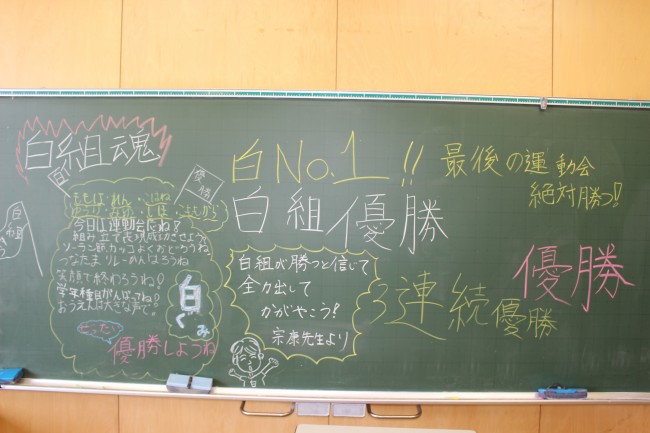 白組魂
白
優勝
白組
今日は運動会だね!
組み立て表現成功させよう
ソーラン節カッコよくおどろうね
つなたまリレーのんばろうね
笑顔で終わろうね!
学年種目がんばってね!
おうえんは大きな声で。
ぜったい
優勝しようね
白
くみ
白No.1!!
白組優勝
白組が勝つと信じて
全力出して
かがやこう!
宗康先生より
最後の運動会
絶対勝つ!!
3連続優勝
優勝